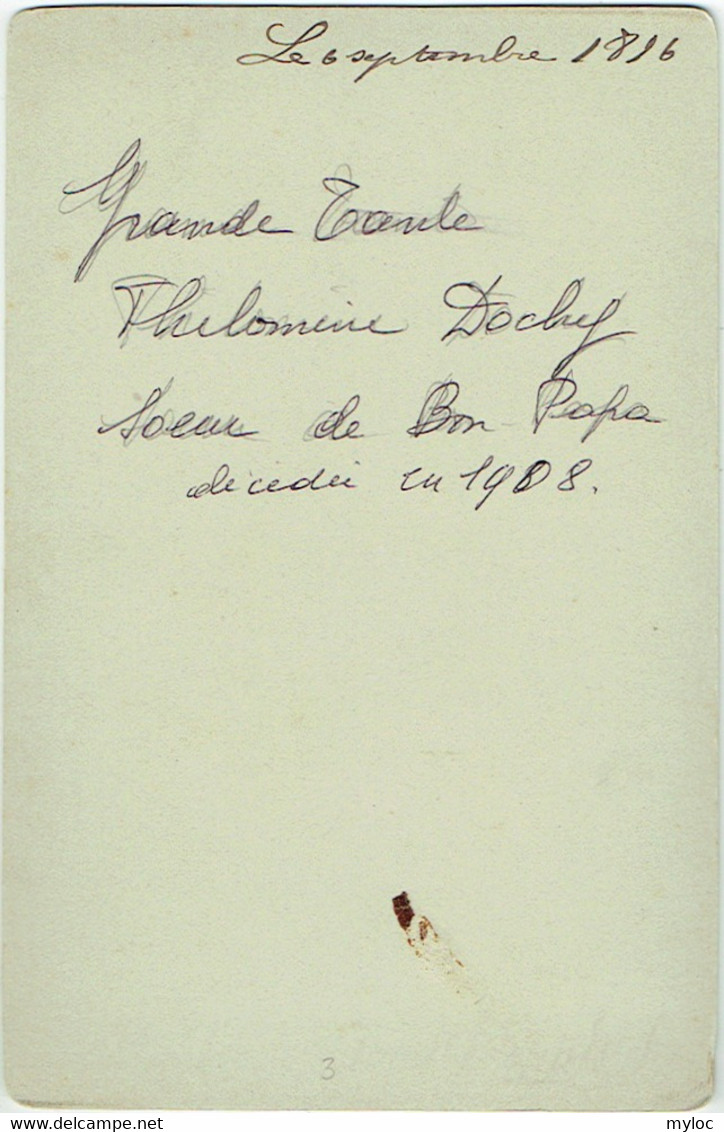 Le 6 septembre 1896
Grande Tante
Philomène Dochy
Soeur de Bon Papa
décédée en 1908.
3
delcampe.net
myloc